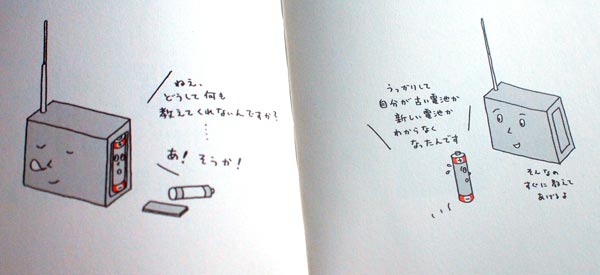 ねえ、
どうして何も
教えてくれないんですか?
……
あ! そうか!
うっかりして
自分が古い電池か
新しい電池か
わからなく
なったんです
そんなの
すぐに教えて
あげるよ